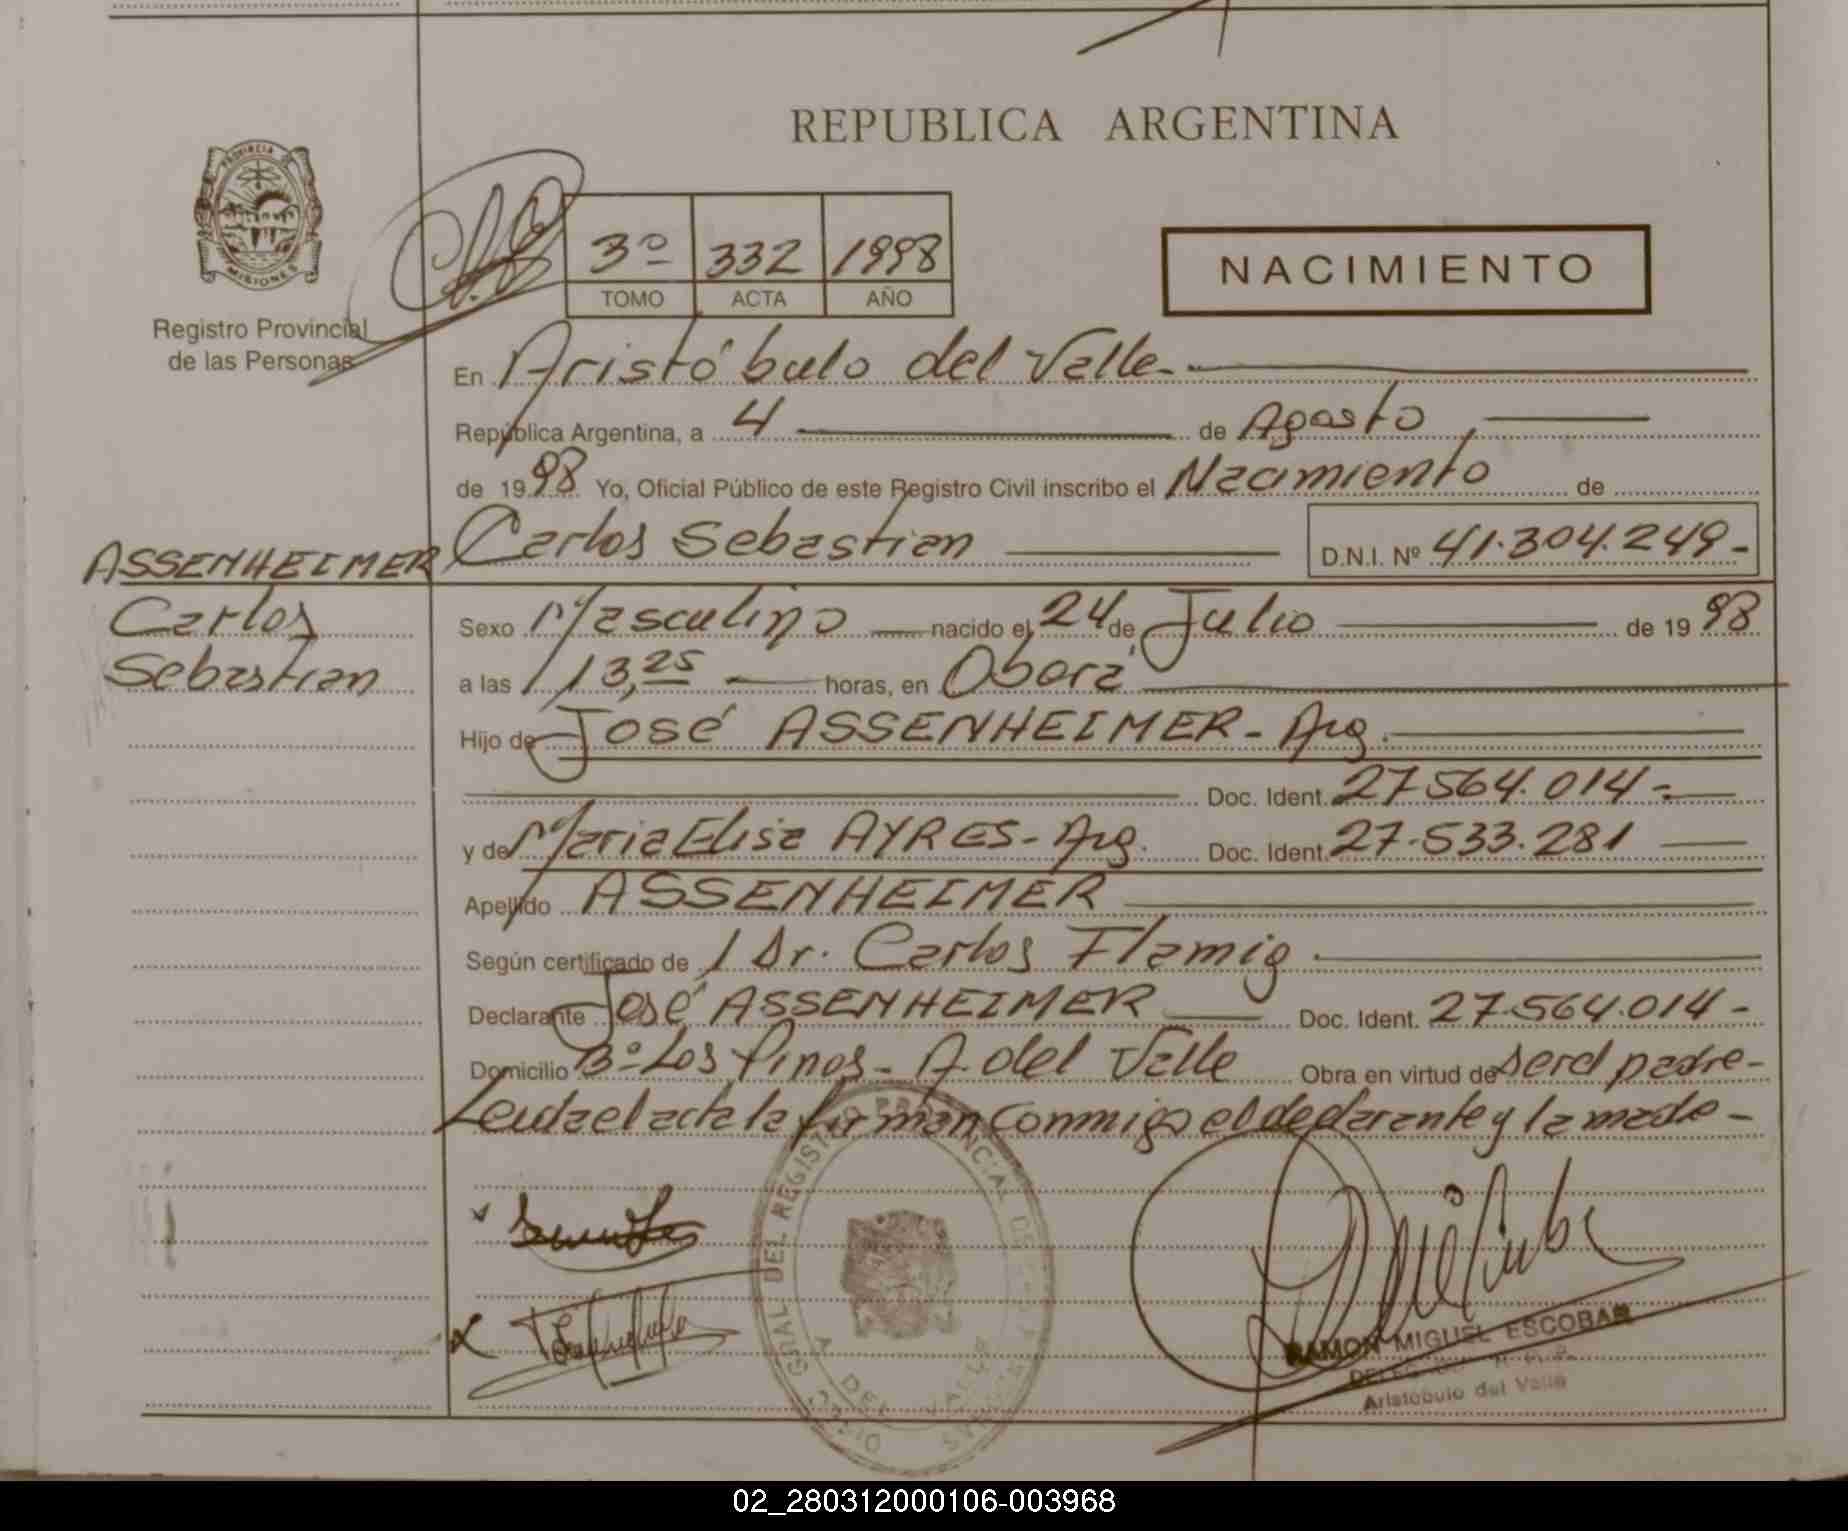 REPUBLICA ARGENTINA
PROVINCIA DE
MISIONES
Registro Provincial
de las Personas
3º 332 1998
TOMO ACTA AÑO
NACIMIENTO
En Aristóbulo del Valle.
República Argentina, a 4 de Agosto
de 1998 Yo, Oficial Público de este Registro Civil inscribo el Nacimiento de
ASSENHEIMER Carlos Sebastian D.N.I. Nº 41.304.249-
Carlos Sexo Masculino nacido el 24 de Julio de 1998
Sebastian a las 13,25 horas, en Oberá
Hijo de José ASSENHEIMER - Arg.
Doc. Ident. 27.564.014-
y de Maria Elisa AYRES - Arg. Doc. Ident. 27.533.281
Apellido ASSENHEIMER
Según certificado de Dr. Carlos Flamig
Declarante José ASSENHEIMER Doc. Ident. 27.564.014-
Domicilio Bº Los Pinos - A. del Valle Obra en virtud de ser el padre-
Leida el acta la firman conmigo el declarante y la madre-
GRAL DEL REGISTRO PROVINCIAL DE
A. DEL VALLE
RAMON MIGUEL ESCOBAR
Aristóbulo del Valle
02_280312000106-003968